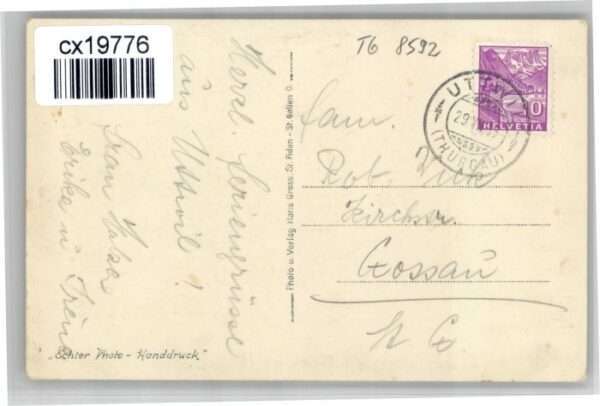 cx19776
TG 8592
Herzl. Feriengrüsse
aus Uttwil!
Frau
Erika u Irène
„Echter Photo - Handdruck"
Photo u. Verlag Hans Gross St. Fiden - St. Gallen O.
UTTWIL
29.
(THURGAU)
10
HELVETIA
Fam.
Rob.
Kirchstr.
Gossau
St G